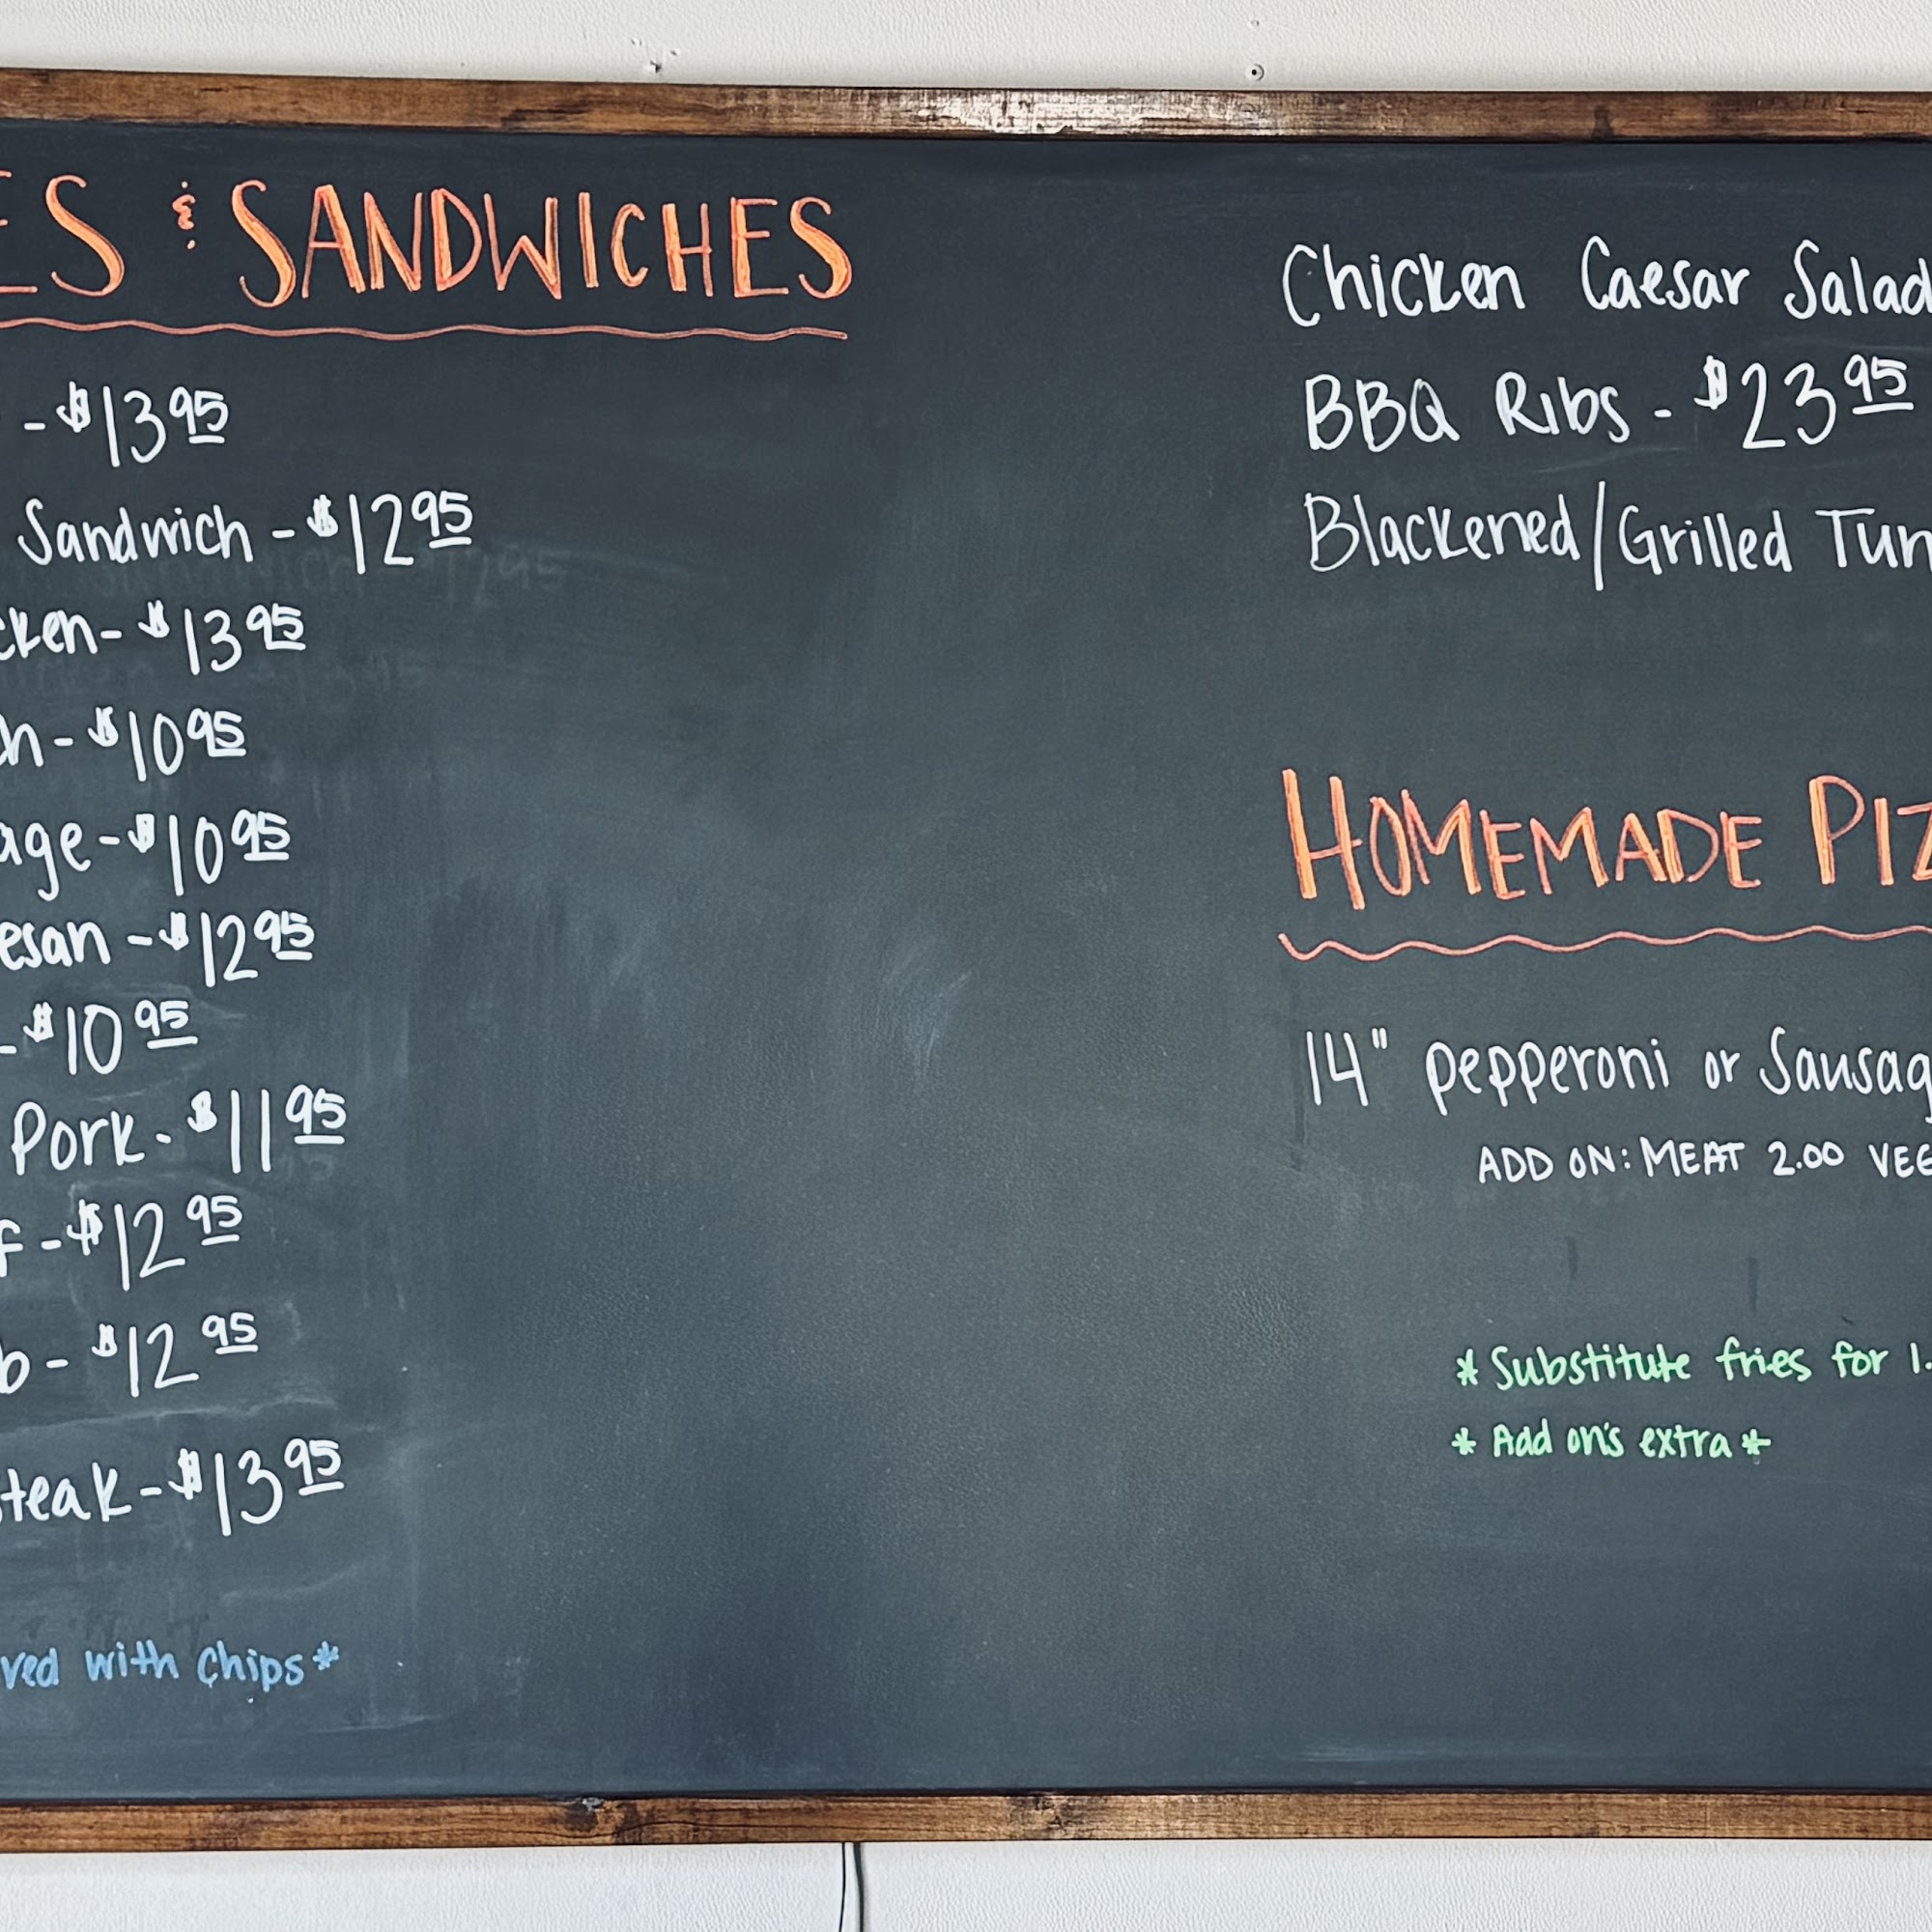 ES & SANDWICHES
- $13 95
Sandwich - $12 95
cken - $13 95
h - $10 95
age - $10 95
esan - $12 95
- $10 95
Pork - $11 95
f - $12 95
b - $12 95
teak - $13 95
ved with chips*
Chicken Caesar Salad
BBQ Ribs - $23 95
Blackened/Grilled Tun
HOMEMADE PIZ
14" pepperoni or Sausag
ADD ON: MEAT 2.00 VEG
* Substitute fries for 1.
* Add on's extra *